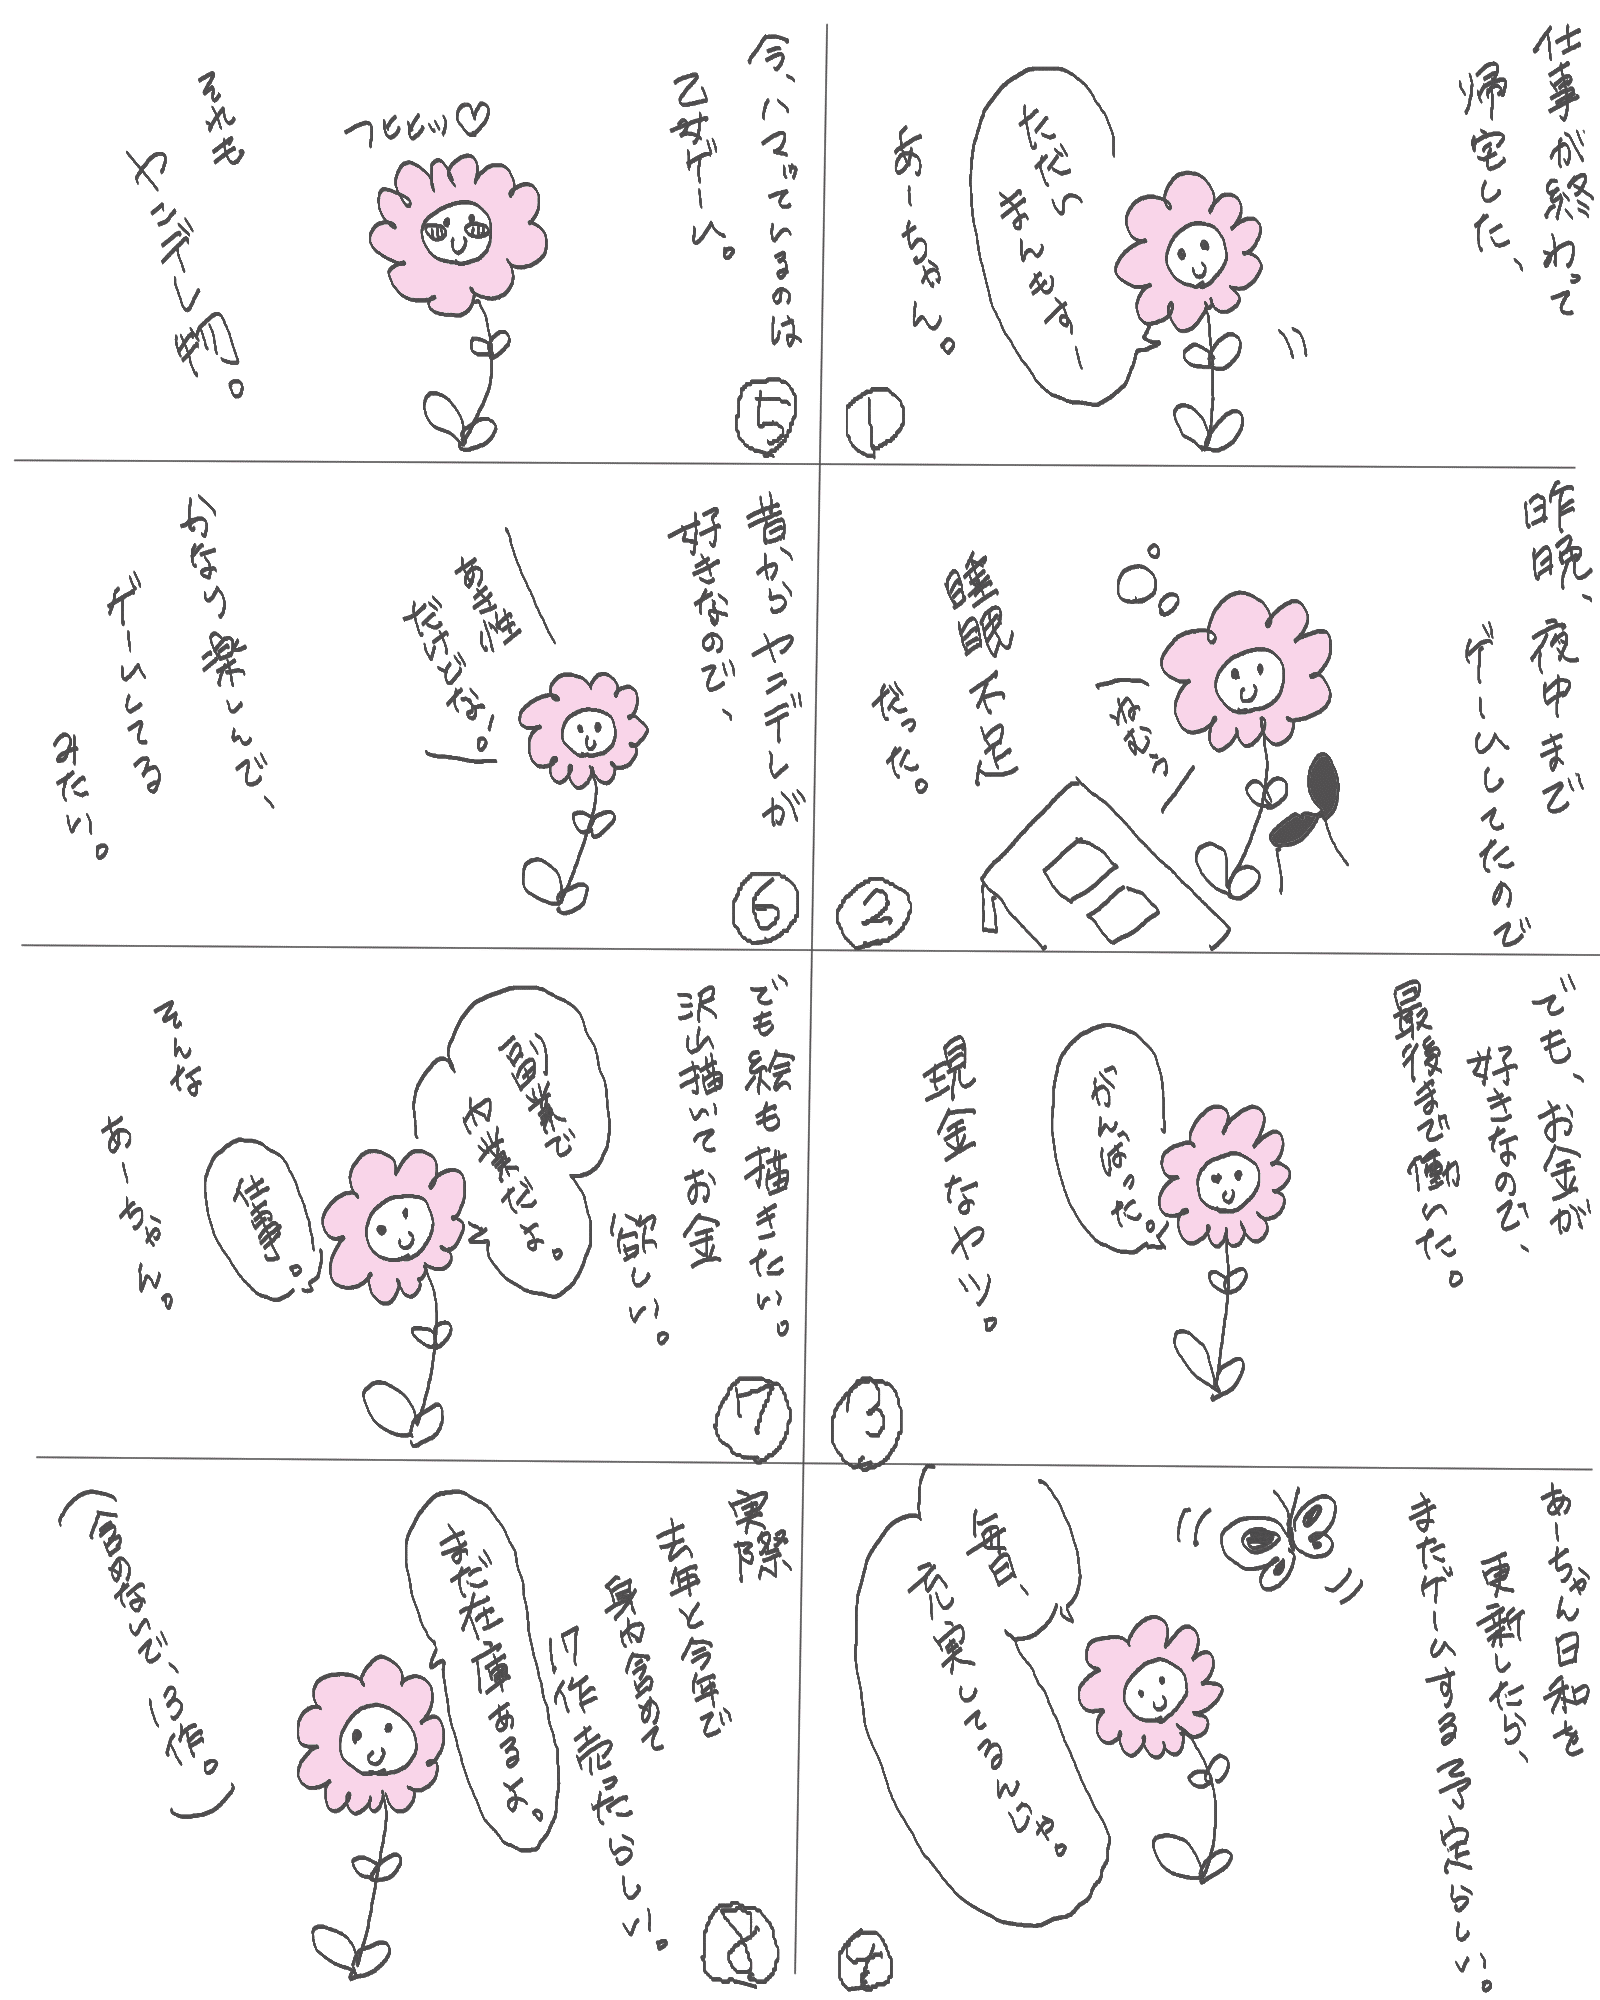 仕事が終わって
帰宅した、
ただい
まんもすー
あーちゃん。
①
昨晩、夜中まで
ゲームしてたので
ねむぅ
睡眠不足
だった。
②
でも、お金が
好きなので、
最後まで働いた。
がんばった。
現金なヤツ。
③
あーちゃん日和を
更新したら、
またゲームする予定らしい。
毎日、
充実してるんじゃ。
④
今、ハマっているのは
乙女ゲーム。
つととッ♡
それも
ヤンデレ物。
⑤
昔からヤンデレが
好きなので、
あき性
だけどな!
かなり楽しんで、
ゲームしてる
みたい。
⑥
でも絵も描きたい。
沢山描いてお金
欲しい。
副業で
内業だよ。
仕事。
そんな
あーちゃん。
⑦
実際
去年と今年で
身内含めて
17作売ったらしい。
まだ在庫あるよ。
(含めないで、13作。)
⑧